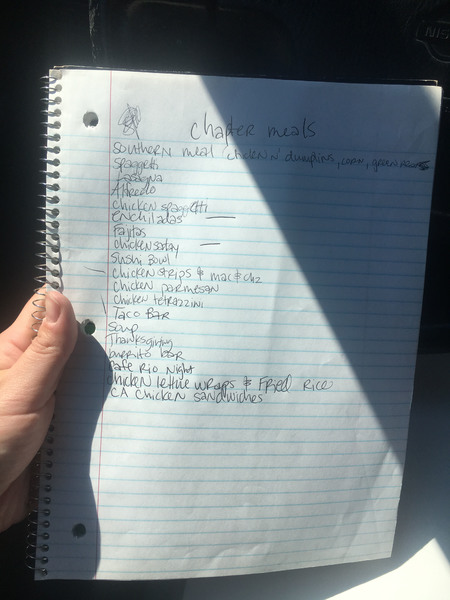 NIS
chapter meals
Southern meal chicken n' dumplins, corn, green beans
spaghetti
Lasagna
Alfredo
chicken spaghetti
enchiladas
Fajitas
chicken satay
Sushi Bowl
chicken strips & mac & chz
chicken parmesan
chicken tetrazzini
Taco Bar
Soup
Thanksgiving
burrito bar
Cafe Rio Night
Chicken lettuce wraps & Fried Rice
CA chicken sandwiches